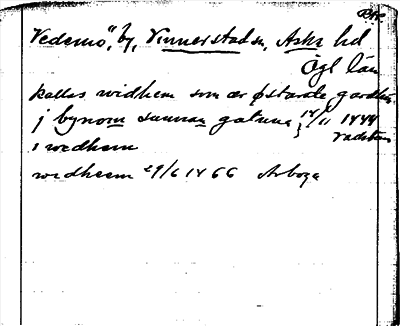 Vedemö", by, Vinnerstad sn, Aska hd
Ögl län
kallas widhem som ær østarste gardhin
j bynom sunnan gatuna 14/11 1444
Vadstena
i wedhem
wedheem 29/6 1466 Arboga